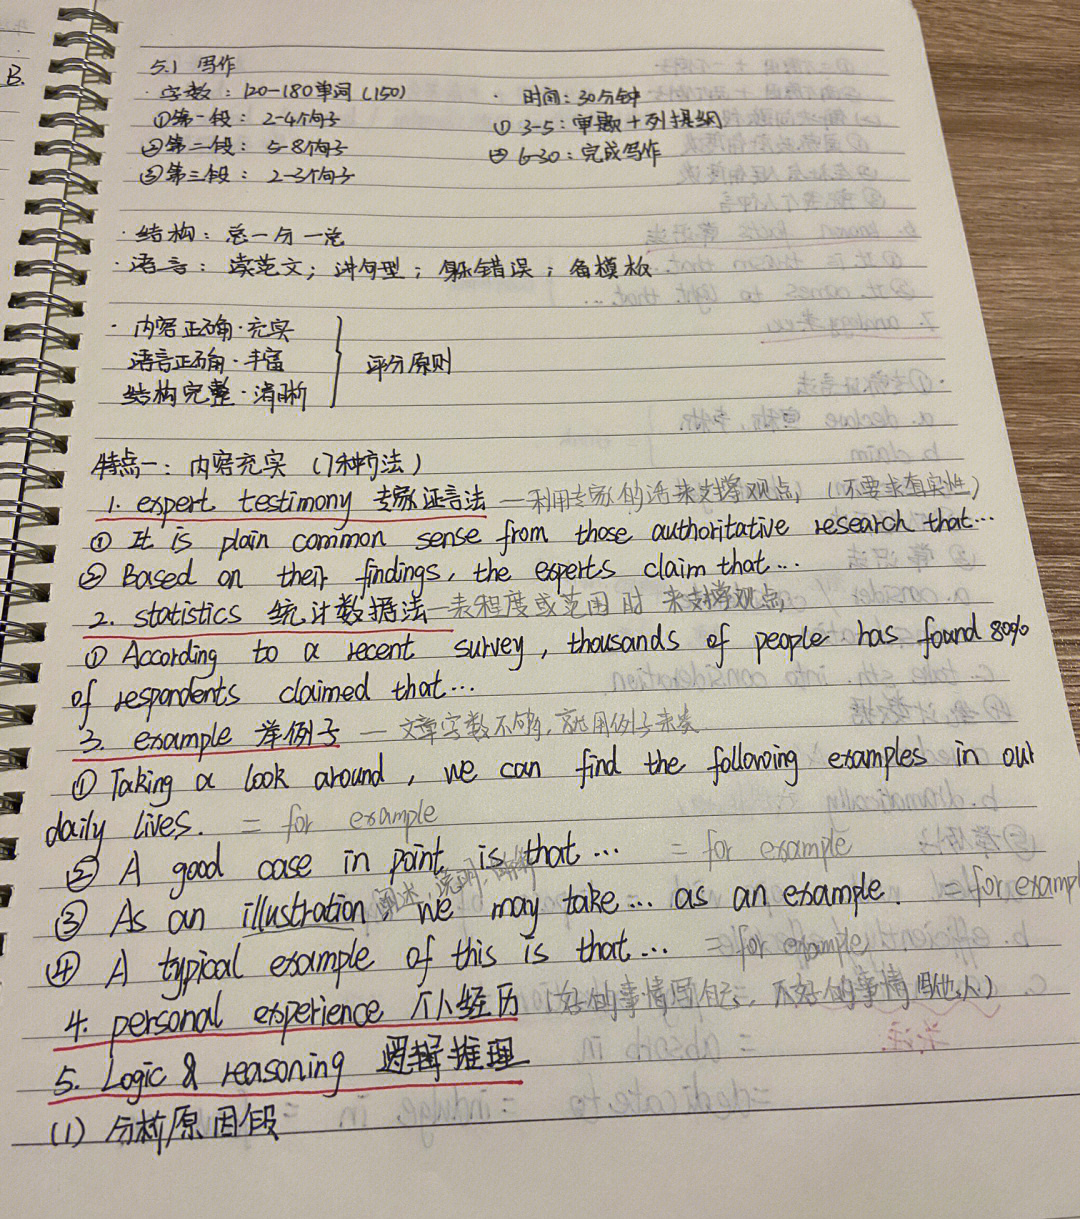 B.
5.1 写作
· 字数：120-180单词（150） · 时间：30分钟
①第一段：2-4个句子 ① 3-5：审题+列提纲
②第二段：5-8个句子 ② 6-30：完成写作
③第三段：2-3个句子
· 结构：总一分一总
· 语言：读范文；讲句型；躲错误；备模板
· 内容正确·充实
语言正确·丰富 评分原则
结构完整·清晰
特点一：内容充实（7种方法）
1. expert testimony 专家证言法 —利用专家的话来支撑观点，（不要求真实性）
① It is plain common sense from those authoritative research that...
② Based on their findings, the experts claim that...
2. statistics 统计数据法—表程度或范围时 来支撑观点
① According to a recent survey, thousands of people has found 80%
of respondents claimed that...
3. example 举例子 — 文章字数不够，就用例子来凑
① Taking a look around, we can find the following examples in our
daily lives. = for example
② A good case in point is that ... = for example
③ As an illustration 阐述，说明，解释, we may take... as an example. = for exampl
④ A typical example of this is that... = for example
4. personal experience 个人经历（好的事情写自己，不好的事情写他人）
5. Logic & reasoning 逻辑推理
(1) 分析原因段